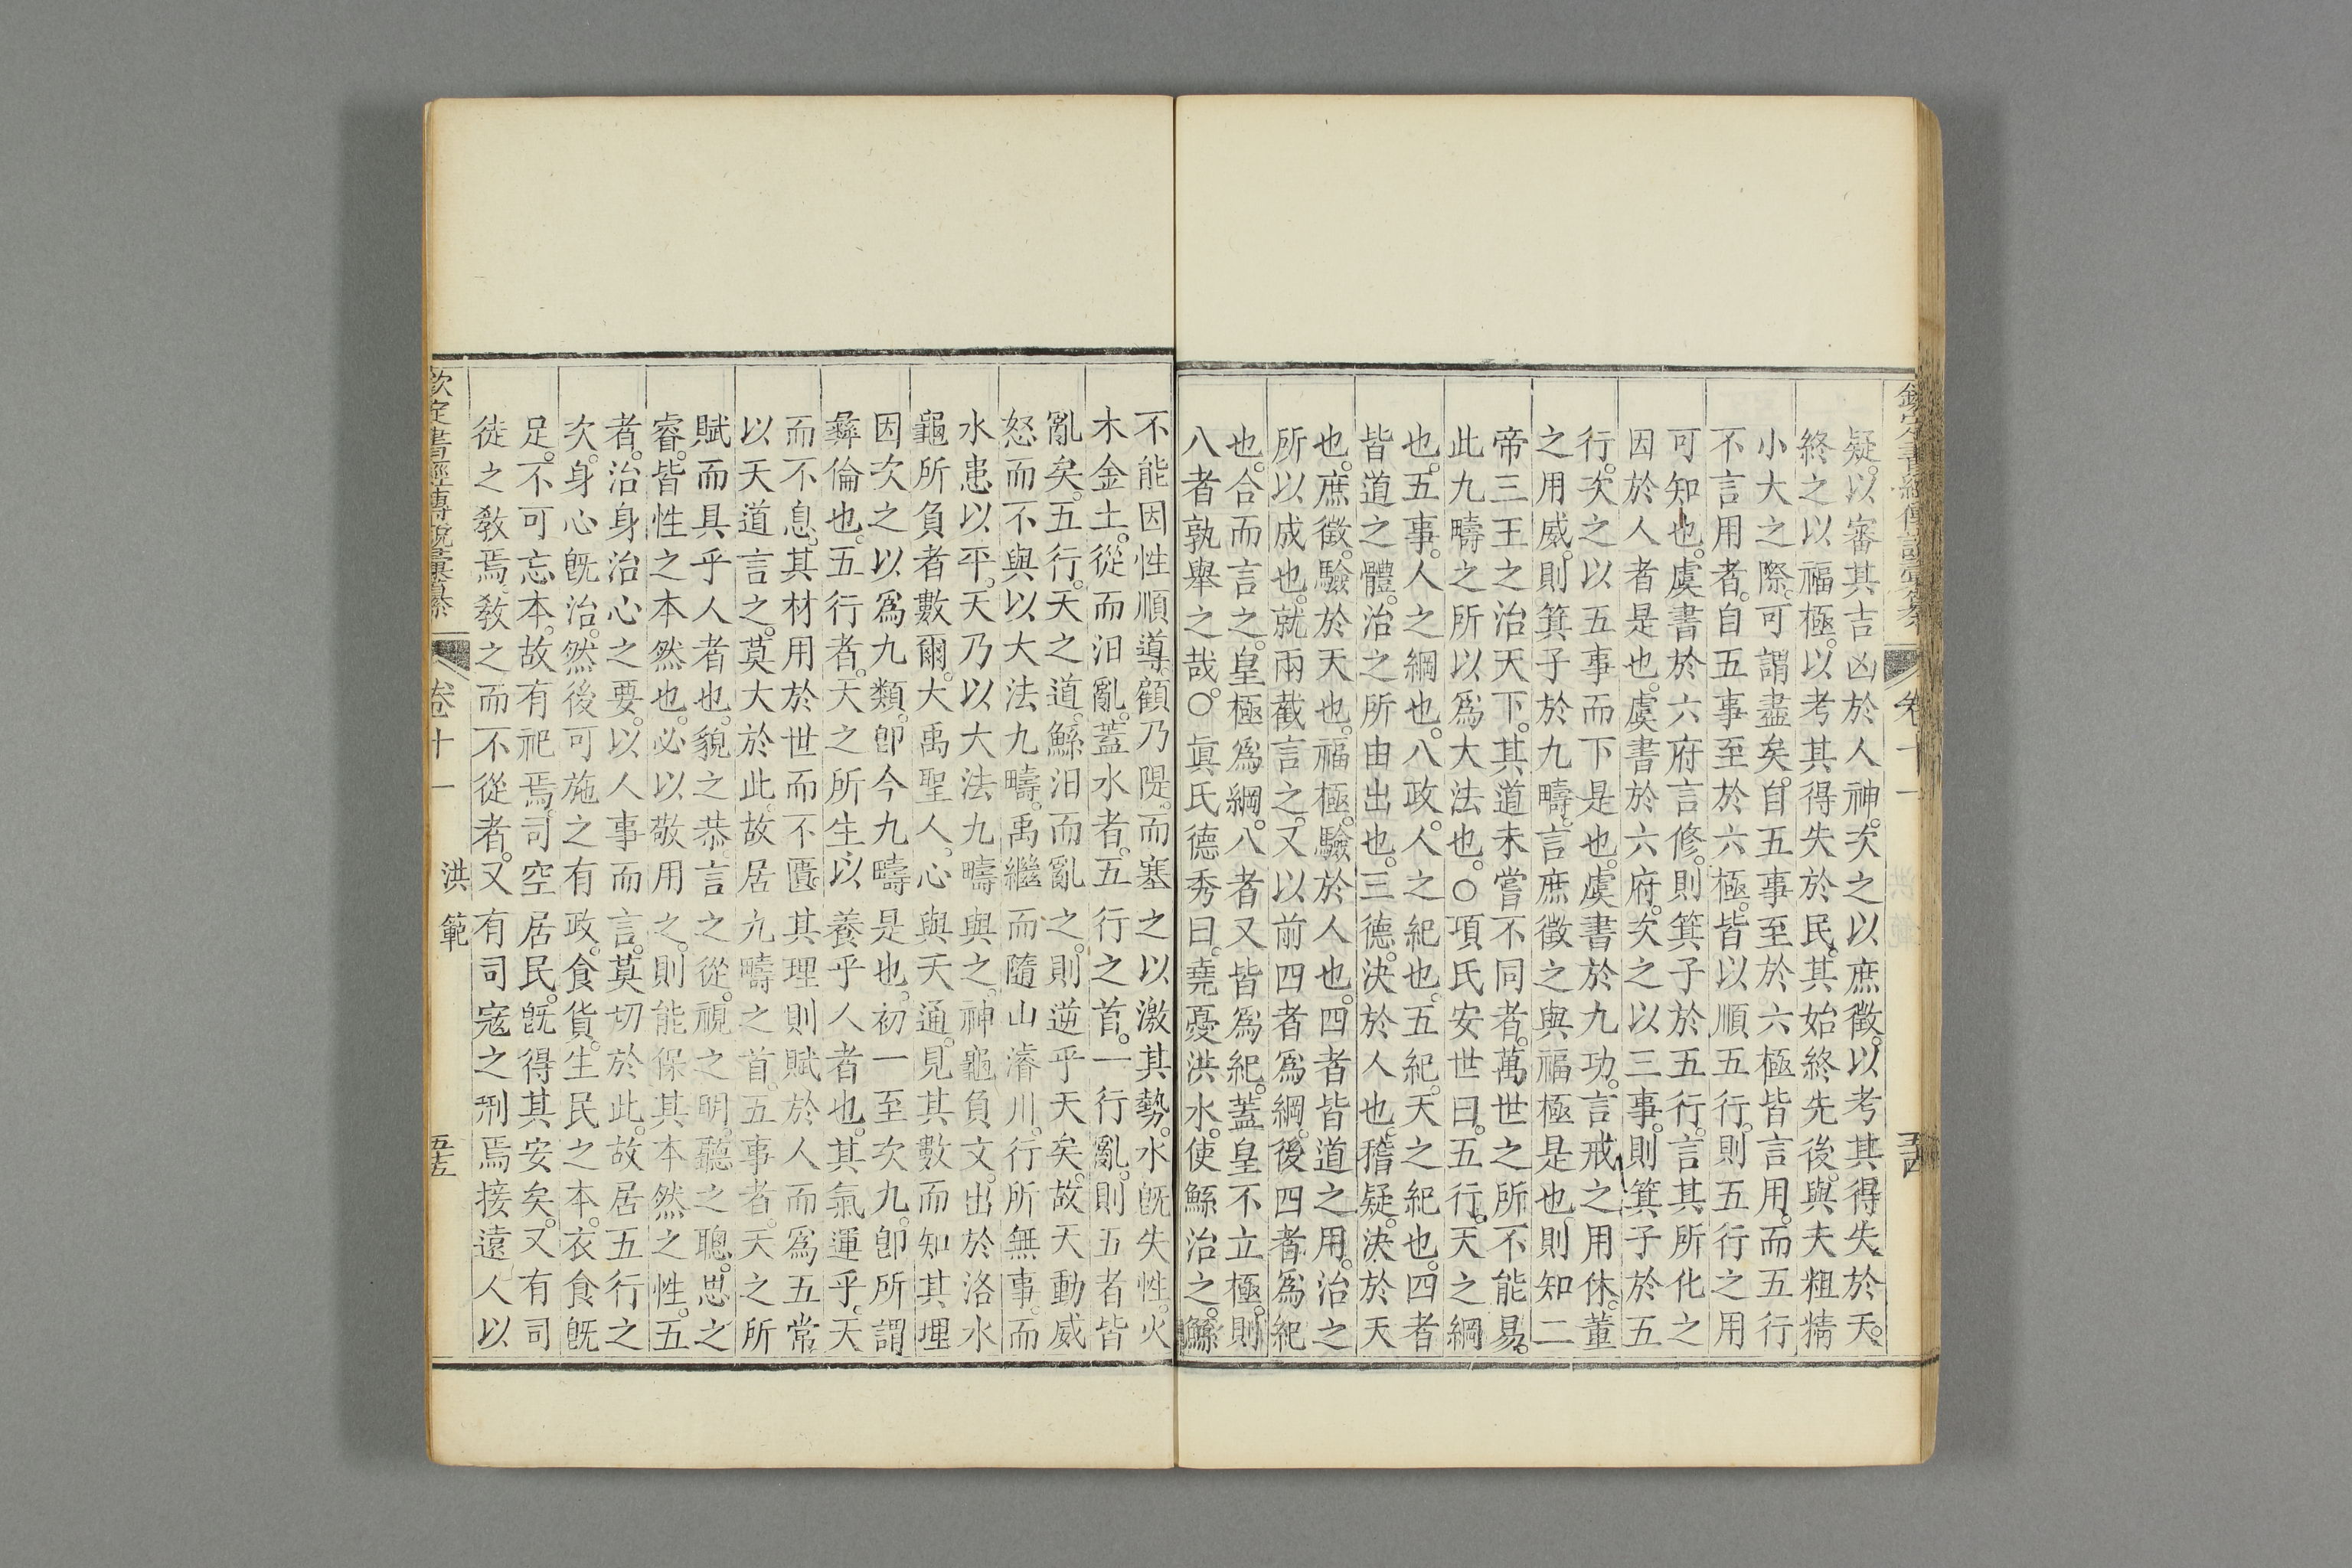 疑。以審其吉凶於人神。次之以庶徵。以考其得失於天。
終之以福極。以考其得失於民。其始終先後。與夫粗精
小大之際。可謂盡矣。自五事至於六極皆言用。而五行
不言用者。自五事至於六極。皆以順五行。則五行之用
可知也。虞書於六府言修。則箕子於五行。言其所化之
因於人者是也。虞書於六府。次之以三事。則箕子於五
行。次之以五事而下是也。虞書於九功。言戒之用休。董
之用威。則箕子於九疇。言庶徵之與福極是也。則知二
帝三王之治天下。其道未嘗不同者。萬世之所不能易。
此九疇之所以爲大法也。○項氏安世曰。五行。天之綱
也。五事。人之綱也。八政。人之紀也。五紀。天之紀也。四者
皆道之體。治之所由出也。三德。決於人也。稽疑。決於天
也。庶徵。驗於天也。福極。驗於人也。四者皆道之用。治之
所以成也。就兩截言之。又以前四者爲綱。後四者爲紀
也。合而言之。皇極爲綱。八者又皆爲紀。蓋皇不立極。則
八者孰舉之哉。○眞氏德秀曰。堯憂洪水。使鯀治之。鯀
不能因性順導。顧乃隄而塞之。以激其勢。水旣失性。火
木金土。從而汩亂。蓋水者。五行之首。一行亂。則五者皆
亂矣。五行。天之道。鯀汩而亂之。則逆乎天矣。故天動威
怒而不與以大法九疇。禹繼而隨山濬川。行所無事。而
水患以平。天乃以大法九疇與之。神龜負文。出於洛水
龜所負者數爾。大禹聖人。心與天通。見其數而知其理
因次之以爲九類。卽今九疇是也。初一至次九。卽所謂
彝倫也。五行者。天之所生以養乎人者也。其氣運乎天
而不息。其材用於世而不匱。其理則賦於人而爲五常
以天道言之。莫大於此。故居九疇之首。五事者。天之所
賦而具乎人者也。貌之恭。言之從。視之明。聽之聰。思之
睿。皆性之本然也。必以敬用之。則能保其本然之性。五
者。治身治心之要。以人事而言。莫切於此。故居五行之
次。身心旣治。然後可施之有政。食貨。生民之本。衣食旣
足。不可忘本。故有祀焉。司空居民。旣得其安矣。又有司
徒之敎焉。敎之而不從者。又有司寇之刑焉。接遠人以
欽定書經傳說彙纂 卷十一 洪範 五十五